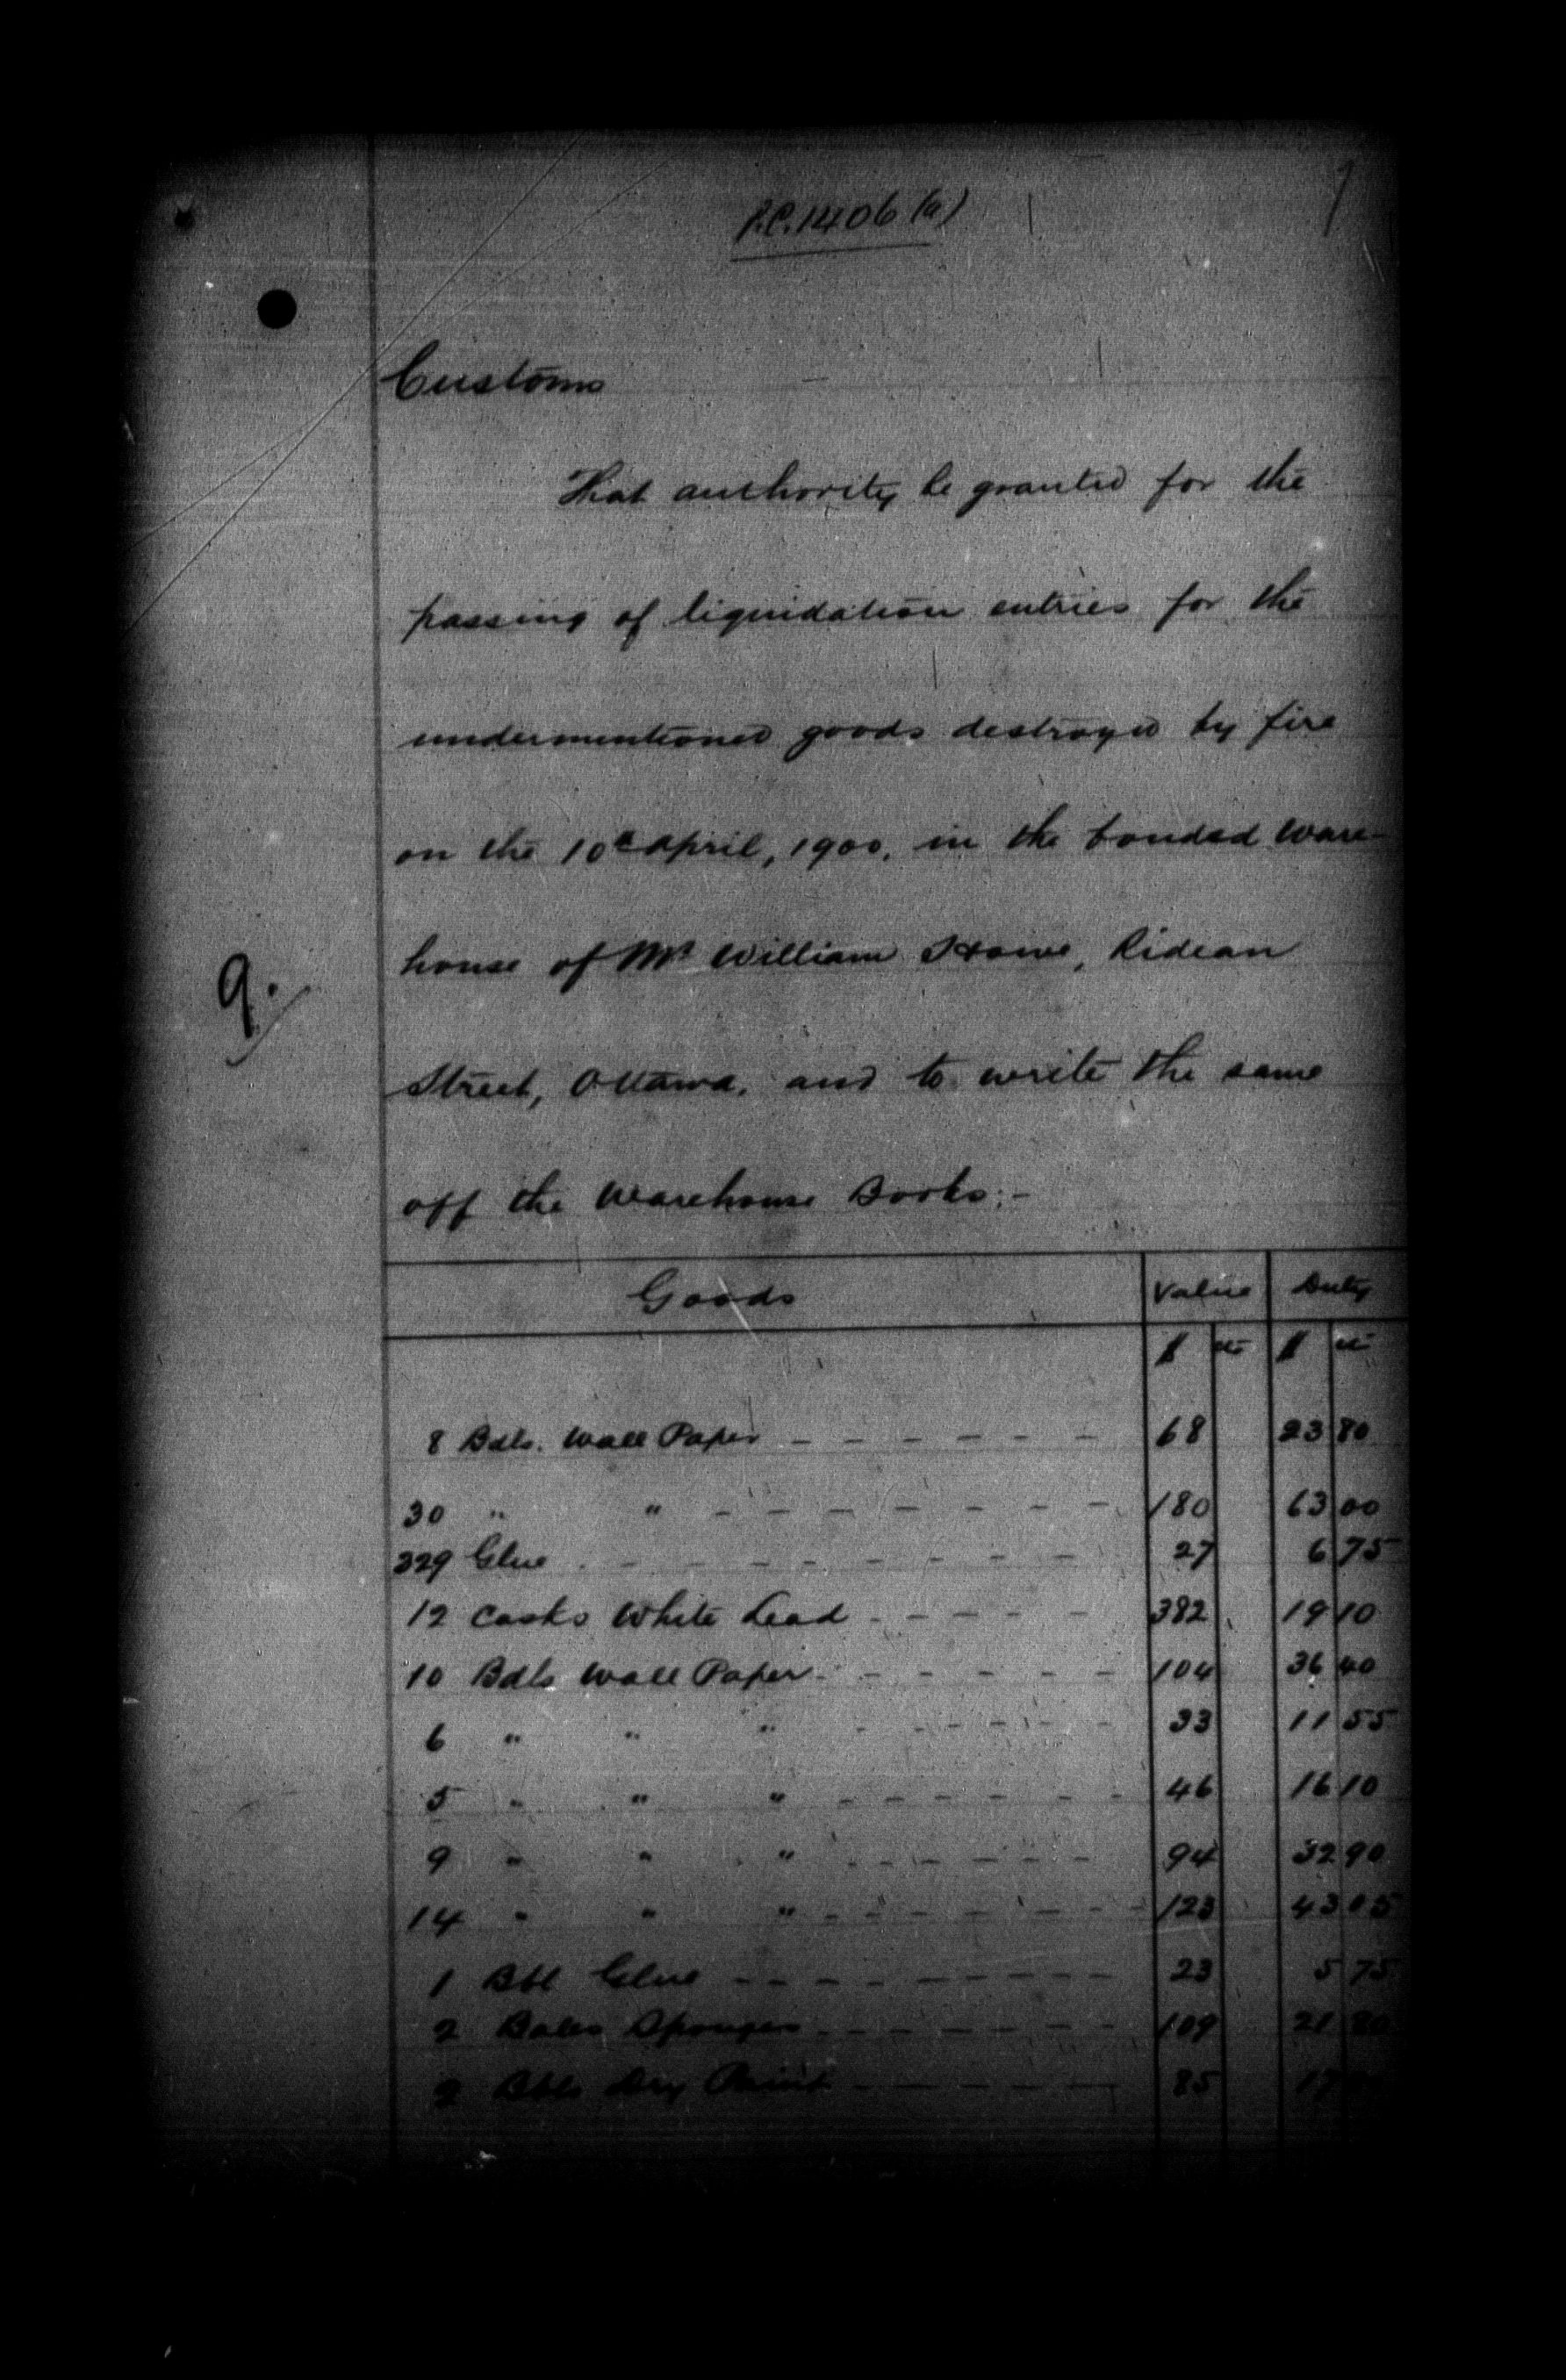 P.C. 1406 (a)
Customs
That authority be granted for the
passing of liquidation entries for the
undermentioned goods destroyed by fire
on the 10th April, 1900, in the bonded Ware-
house of Mr William Howe, Rideau
9.
Street, Ottawa, and to write the same
off the Warehouse Books:-
Goods Value Duty
$ cts $ cts
8 Bdls. Wall Paper 68 23 80
30 " " 180 63 00
329 Glue 27 6 75
12 Casks White Lead 382 19 10
10 Bdls Wall Paper 104 36 40
6 " " " 33 11 55
5 " " " 46 16 10
9 " " " 94 32 90
14 " " " 123 43 05
1 Bbl Glue 23 5 75
2 Bales Sponges 109 21 80
2 Bbls Dry Paint 85 17